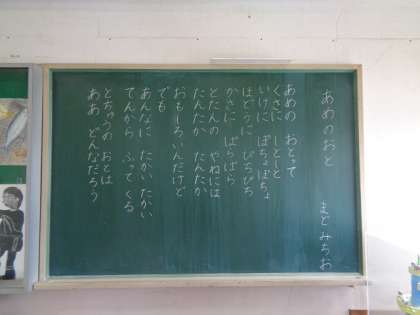 あめのおと
まどみちお
あめの おとって
くさに しとしと
いけに ぽちょぽちょ
ほどうに ぴちぴち
かさに ぱらぱら
とたんの やねには
たんたか たんたか
おもしろいんだけど
でも
あんなに たかい たかい
てんから ふってくる
とちゅうの おとは
ああ どんなだろう